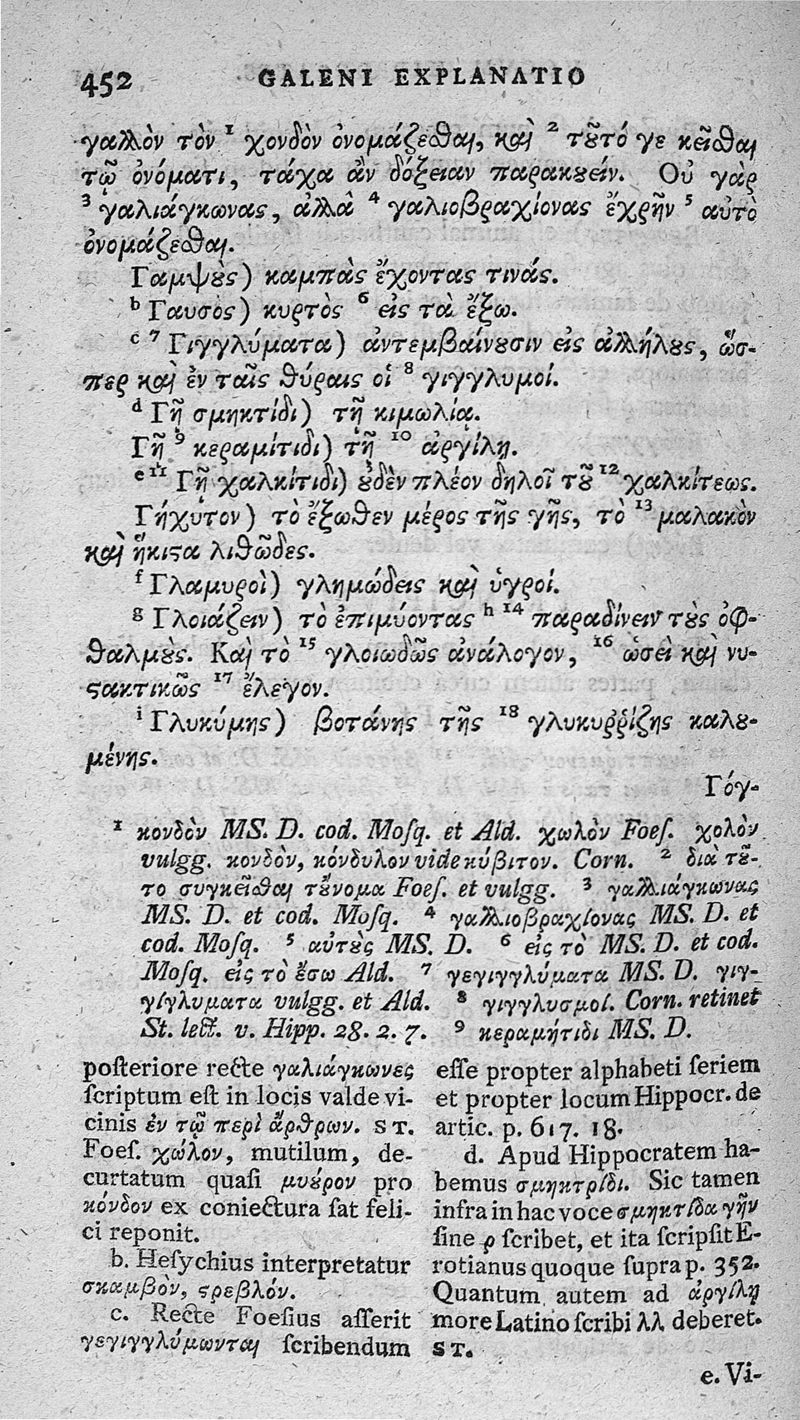 452 GALENI EXPLANATIO
γαλλὸν τὸν ¹ χονδὸν ὀνομάζεσθαι, καὶ ² τοῦτό γε κεῖσθαι
τῷ ὀνόματι, τάχα ἂν δόξειαν παρακούειν. Οὐ γὰρ
³ γαλιάγκωνας, ἀλλὰ ⁴ γαλιοβραχίονας ἔχρῆν ⁵ αὐτὸ
ὀνομάζεσθαι.
Γαμψοὺς) καμπὰς ἔχοντας τινάς.
ᵇ Γαυσος) κυρτὸς ⁶ εἰς τὰ ἔξω.
ᶜ ⁷ Γιγγλύματα) ἀντεμβαίνουσιν εἰς ἀλλήλους, ὥσ-
περ καὶ ἐν ταῖς θύραις οἱ ⁸ γιγγλυμοί.
ᵈ Γῆ σμηκτίδι) τῇ κιμωλίᾳ.
Γῆ ⁹ κεραμίτιδι) τῇ ¹⁰ ἀργίλῃ.
ᵉ ¹¹ Γῇ χαλκίτιδι) οὐδὲν πλέον δηλοῖ τοῦ ¹² χαλκίτεως.
Γήχυτον) τὸ ἔξωθεν μέρος τῆς γῆς, τὸ ¹³ μαλακὸν
καὶ ἥκιστα λιθῶδες.
ᶠ Γλαμυροὶ) γλημώδεις καὶ ὑγροί.
ᵍ Γλοιάζειν) τὸ ἐπιμύοντας ʰ ¹⁴ παραδίνειν τοὺς ὀφ-
θαλμούς. Καὶ τὸ ¹⁵ γλοιωδῶς ἀνάλογον, ¹⁶ ὡσεὶ καὶ νυ-
στακτικῶς ¹⁷ ἔλεγον.
ⁱ Γλυκύμης) βοτάνης τῆς ¹⁸ γλυκυῤῥίζης καλου-
μένης.
Γόγ-
¹ κονδὸν MS. D. cod. Moſq. et Ald. χωλὸν Foeſ. χολὸν
vulgg. κονδὸν, κόνδυλον vide κύβιτον. Corn. ² διὰ τοῦ-
το συγκεῖσθαι τοὔνομα Foeſ. et vulgg. ³ γαλλιάγκωνας
MS. D. et cod. Moſq. ⁴ γαλλιοβραχίονας MS. D. et
cod. Moſq. ⁵ αὐτοὺς MS. D. ⁶ εἰς τὸ MS. D. et cod.
Moſq. εἰς τὸ ἔσω Ald. ⁷ γεγιγγλύματα MS. D. γιγ-
γίγλυματα vulgg. et Ald. ⁸ γιγγλυσμοί. Corn. retinet
St. lect. v. Hipp. 28. 2. 7. ⁹ κεραμήτιδι MS. D.
poſteriore recte γαλιάγκωνες
ſcriptum eſt in locis valde vi-
cinis ἐν τῷ περὶ ἄρθρων. ST.
Foeſ. χώλον, mutilum, de-
curtatum quaſi μυούρον pro
κόνδον ex coniectura ſat feli-
ci reponit.
b. Heſychius interpretatur
σκαμβὸν, στρεβλόν.
c. Recte Foeſius aſſerit
γεγιγγλύμωνται ſcribendum
eſſe propter alphabeti ſeriem
et propter locum Hippocr. de
artic. p. 617. 18.
d. Apud Hippocratem ha-
bemus σμηκτρίδι. Sic tamen
infra in hac voce σμηκτίδα γῆν
ſine ρ ſcribet, et ita ſcripſit E-
rotianus quoque ſupra p. 352.
Quantum autem ad ἀργίλῃ
more Latino ſcribi λλ deberet.
ST.
e. Vi-